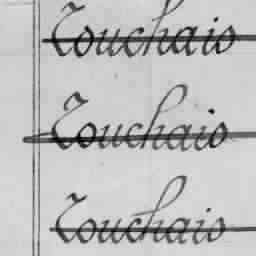 Touchais
Touchais
Touchais